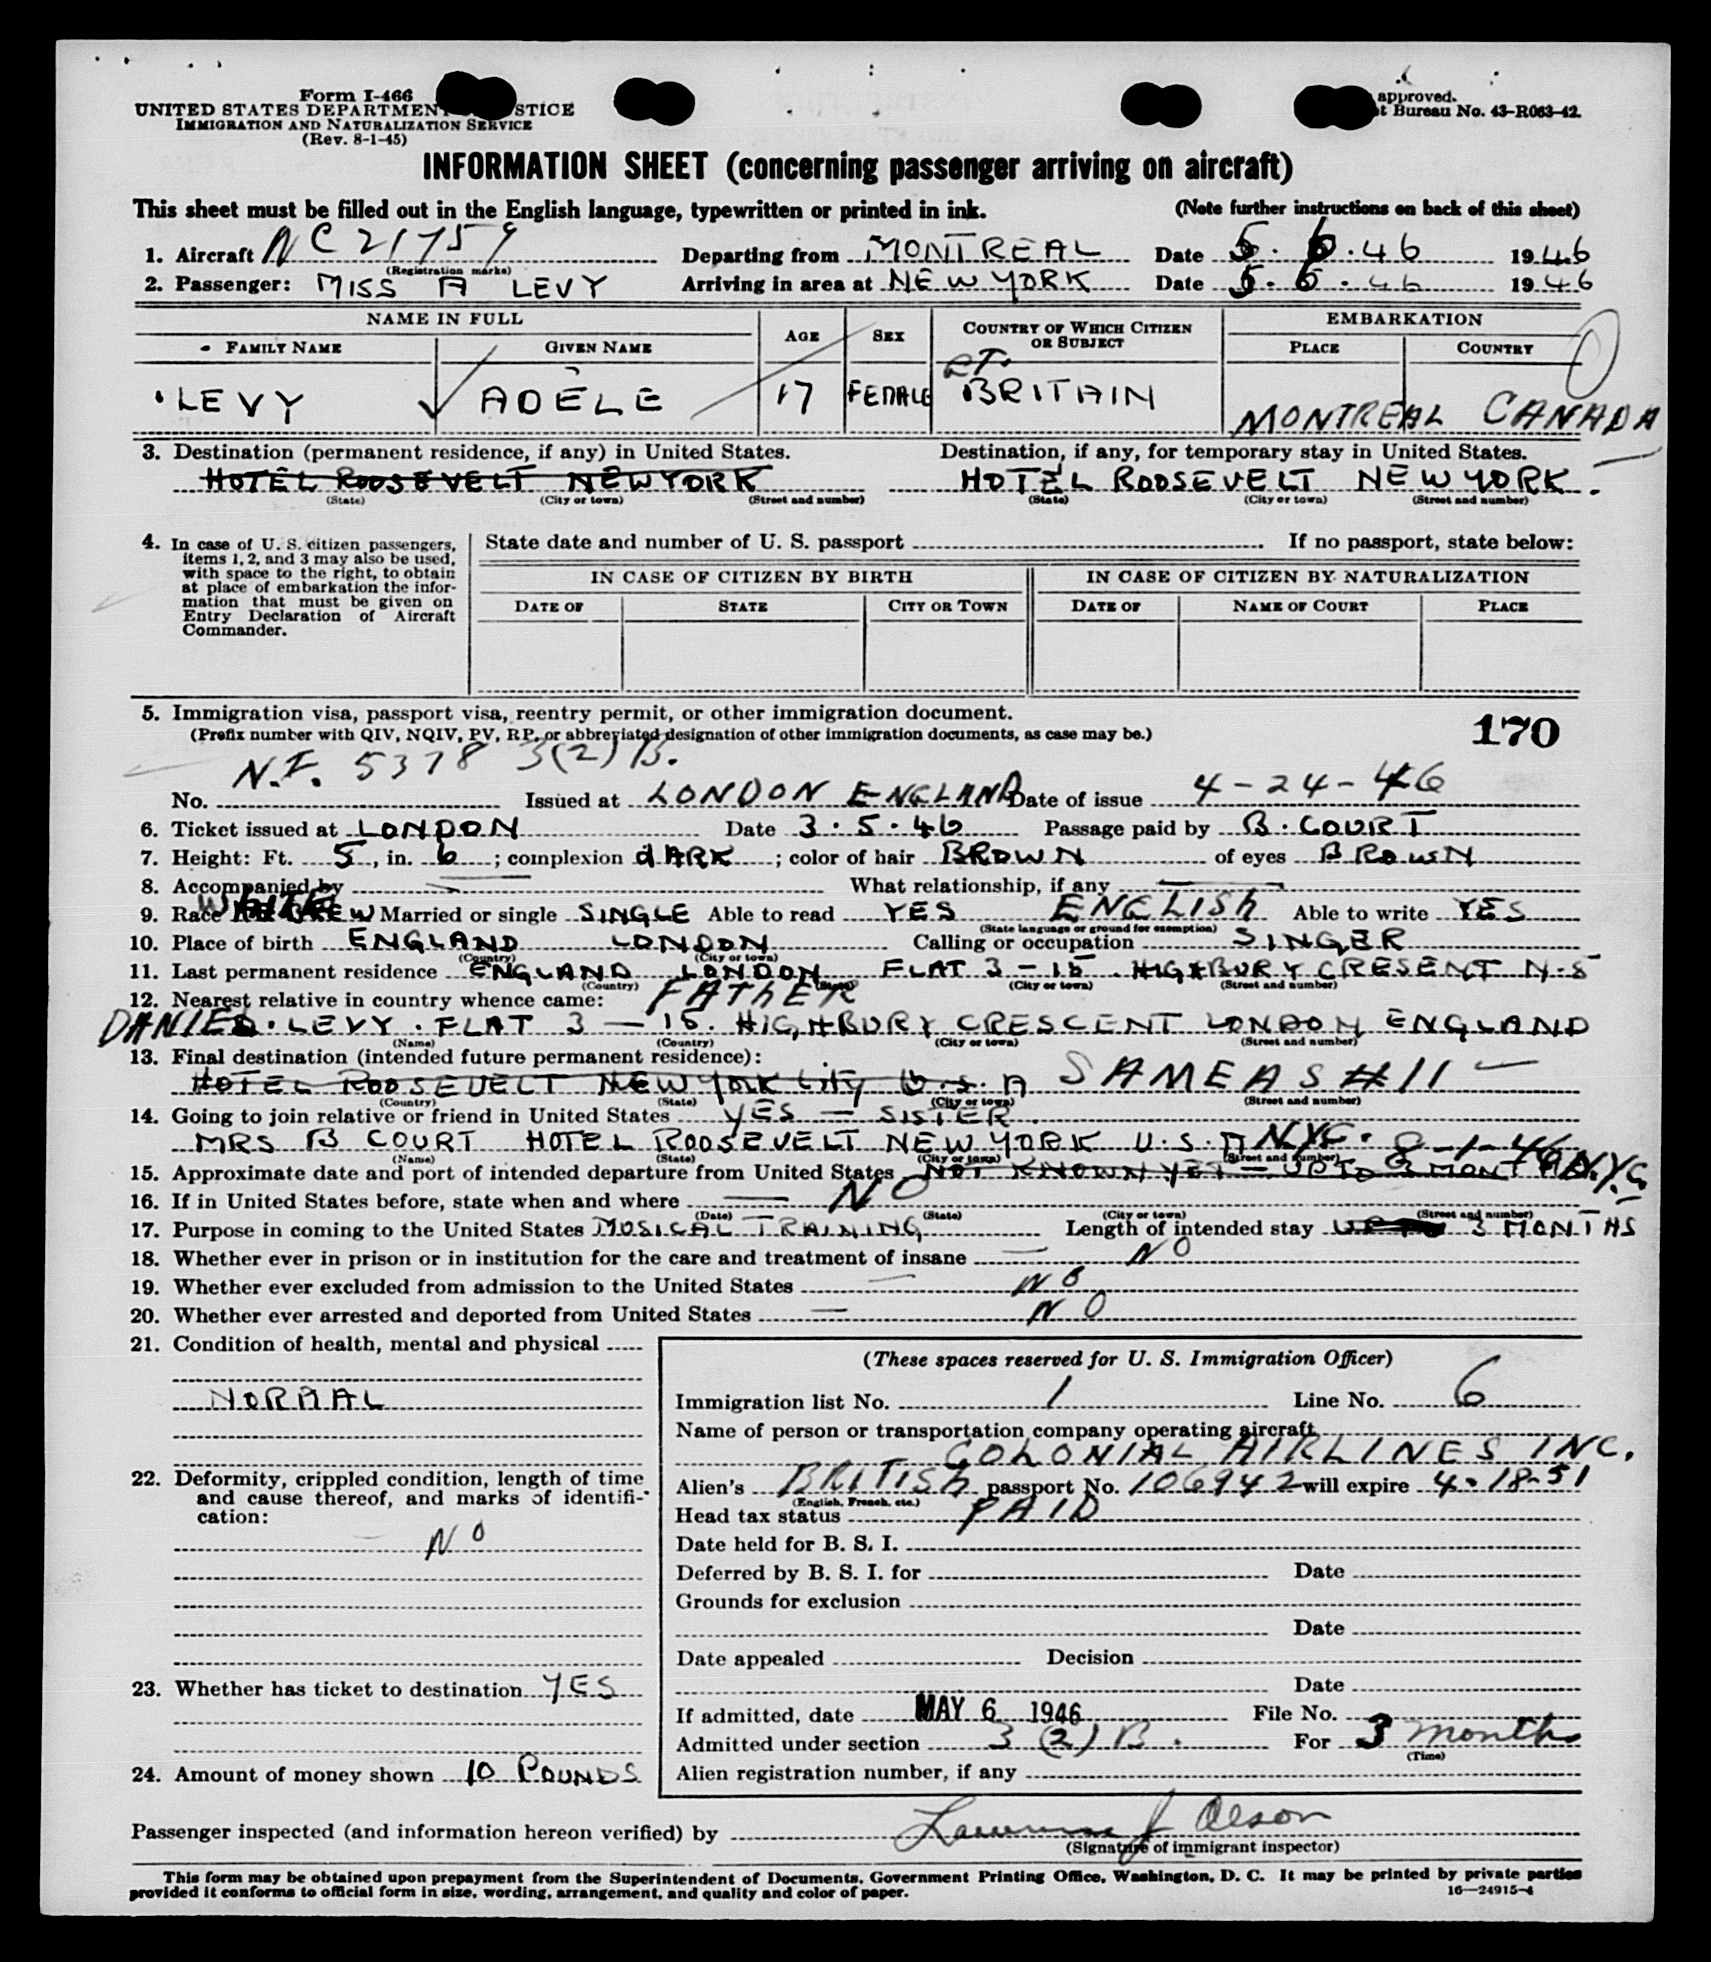 Form I-466
UNITED STATES DEPARTMENT STICE
IMMIGRATION AND NATURALIZATION SERVICE
(Rev. 8-1-45)
approved.
t Bureau No. 43-R063-42.
INFORMATION SHEET (concerning passenger arriving on aircraft)
This sheet must be filled out in the English language, typewritten or printed in ink. (Note further instructions on back of this sheet)
1. Aircraft NC 21759 Departing from MONTREAL Date 5.6.46 1946
(Registration marks)
2. Passenger: MISS A LEVY Arriving in area at NEW YORK Date 5.6.46 1946
NAME IN FULL AGE SEX COUNTRY OF WHICH CITIZEN OR SUBJECT EMBARKATION
FAMILY NAME GIVEN NAME PLACE COUNTRY
LEVY ADÈLE 17 FEMALE GT. BRITAIN MONTREAL CANADA
3. Destination (permanent residence, if any) in United States. Destination, if any, for temporary stay in United States.
HOTEL ROOSEVELT NEW YORK HOTEL ROOSEVELT NEW YORK.
(State) (City or town) (Street and number) (State) (City or town) (Street and number)
4. In case of U. S. citizen passengers, items 1, 2, and 3 may also be used, with space to the right, to obtain at place of embarkation the information that must be given on Entry Declaration of Aircraft Commander.
State date and number of U. S. passport If no passport, state below:
IN CASE OF CITIZEN BY BIRTH IN CASE OF CITIZEN BY NATURALIZATION
DATE OF STATE CITY OR TOWN DATE OF NAME OF COURT PLACE
5. Immigration visa, passport visa, reentry permit, or other immigration document. 170
(Prefix number with QIV, NQIV, PV, RP, or abbreviated designation of other immigration documents, as case may be.)
N.I. 5378 3(2)B.
No. Issued at LONDON ENGLAND Date of issue 4-24-46
6. Ticket issued at LONDON Date 3.5.46 Passage paid by B. COURT
7. Height: Ft. 5, in. 6; complexion dARK; color of hair BROWN of eyes BROWN
8. Accompanied by — What relationship, if any —
9. Race WHITE Married or single SINGLE Able to read YES ENGLISH Able to write YES
(State language or ground for exemption)
10. Place of birth ENGLAND LONDON Calling or occupation SINGER
(Country) (City or town)
11. Last permanent residence ENGLAND LONDON FLAT 3 - 15. HIGHBURY CRESENT N.5
(Country) (State) (City or town) (Street and number)
12. Nearest relative in country whence came: FATHER
DANIEL. LEVY. FLAT 3 — 15. HIGHBURY CRESCENT LONDON ENGLAND
(Name) (Country) (City or town) (Street and number)
13. Final destination (intended future permanent residence):
HOTEL ROOSEVELT NEW YORK City U.S.A SAME AS #11
(Country) (State) (City or town) (Street and number)
14. Going to join relative or friend in United States YES — SISTER.
MRS B COURT HOTEL ROOSEVELT NEW YORK U.S.A N.Y.C. 8-1-46
(Name) (State) (City or town) (Street and number)
15. Approximate date and port of intended departure from United States NOT KNOWN YET — UP TO 3 MONTHS N.Y.C.
16. If in United States before, state when and where — NO
(Date) (State) (City or town) (Street and number)
17. Purpose in coming to the United States MUSICAL TRAINING Length of intended stay UP TO 3 MONTHS
18. Whether ever in prison or in institution for the care and treatment of insane — NO
19. Whether ever excluded from admission to the United States — NO
20. Whether ever arrested and deported from United States — NO
21. Condition of health, mental and physical
NORMAL
22. Deformity, crippled condition, length of time and cause thereof, and marks of identification:
NO
23. Whether has ticket to destination YES
24. Amount of money shown 10 POUNDS
(These spaces reserved for U. S. Immigration Officer)
Immigration list No. 1 Line No. 6
Name of person or transportation company operating aircraft
COLONIAL AIRLINES INC.
Alien's BRITISH passport No. 106942 will expire 4-18-51
(English, French, etc.)
Head tax status PAID
Date held for B. S. I.
Deferred by B. S. I. for Date
Grounds for exclusion
Date
Date appealed Decision
Date
If admitted, date MAY 6 1946 File No.
Admitted under section 3 (2) B. For 3 months
(Time)
Alien registration number, if any
Passenger inspected (and information hereon verified) by Lawrence J Olson
(Signature of immigrant inspector)
This form may be obtained upon prepayment from the Superintendent of Documents, Government Printing Office, Washington, D. C. It may be printed by private parties
provided it conforms to official form in size, wording, arrangement, and quality and color of paper. 16—24915-4